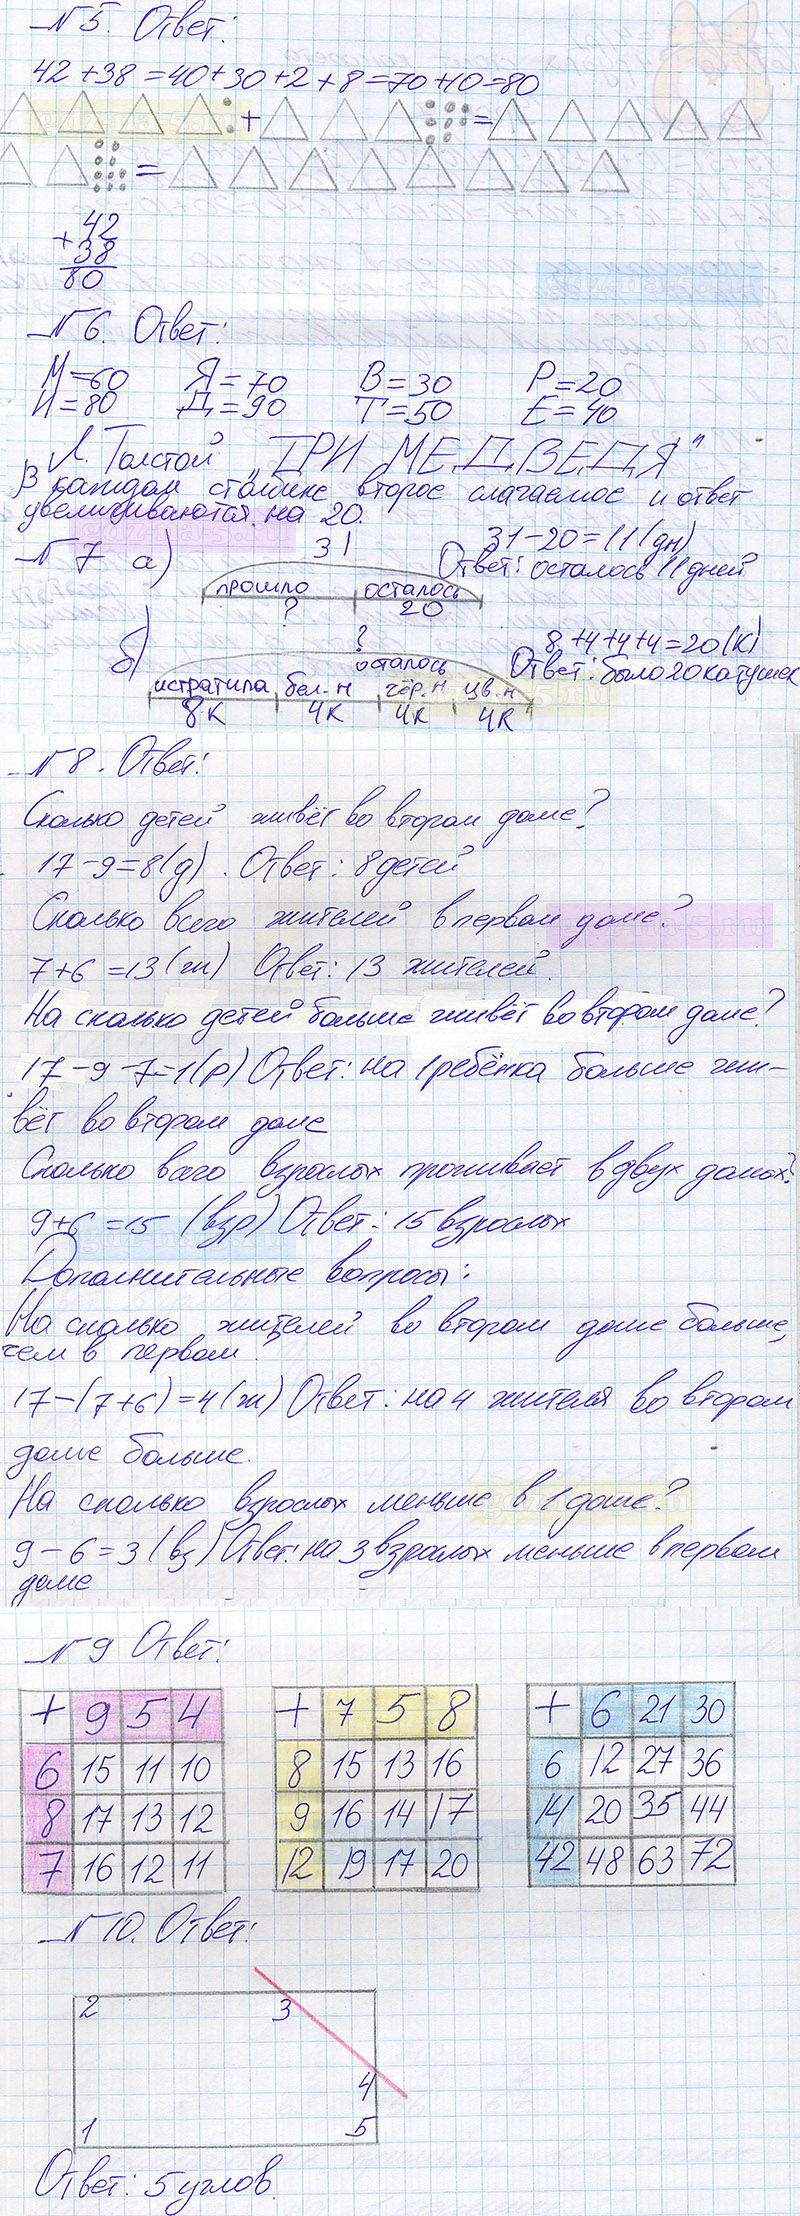 №5. Ответ:
42+38=40+30+2+8=70+10=80
+ =
=
42
+38
80
№6. Ответ:
М=60 Я=70 В=30 Р=20
И=80 Д=90 Т=50 Е=40
Л. Толстой „ТРИ МЕДВЕДЯ"
В каждом столбике второе слагаемое и ответ
увеличиваются на 20.
№7 а) 31 31-20=11(дн)
Ответ: осталось 11 дней
прошло осталось
? 20
б) ? 8+4+4+4=20(к)
осталось Ответ: было 20 катушек
истратила бел.н чёр.н цв.н
8к 4к 4к 4к
№8. Ответ:
Сколько детей живёт во втором доме?
17-9=8(д). Ответ: 8 детей
Сколько всего жителей в первом доме?
7+6=13(ж) Ответ: 13 жителей.
На сколько детей больше живёт во втором доме?
17-9-7=1(р) Ответ: на 1 ребёнка больше жи-
вёт во втором доме
Сколько всего взрослых проживает в двух домах?
9+6=15 (взр) Ответ: 15 взрослых
Дополнительные вопросы:
На сколько жителей во втором доме больше,
чем в первом?
17-(7+6)=4(ж) Ответ: на 4 жителя во втором
доме больше.
На сколько взрослых меньше в 1 доме?
9-6=3(вз) Ответ: на 3 взрослых меньше в первом
доме
№9 Ответ:
+ 9 5 4 + 7 5 8 + 6 21 30
6 15 11 10 8 15 13 16 6 12 27 36
8 17 13 12 9 16 14 17 14 20 35 44
7 16 12 11 12 19 17 20 42 48 63 72
№10. Ответ:
2 3
4
1 5
Ответ: 5 углов.